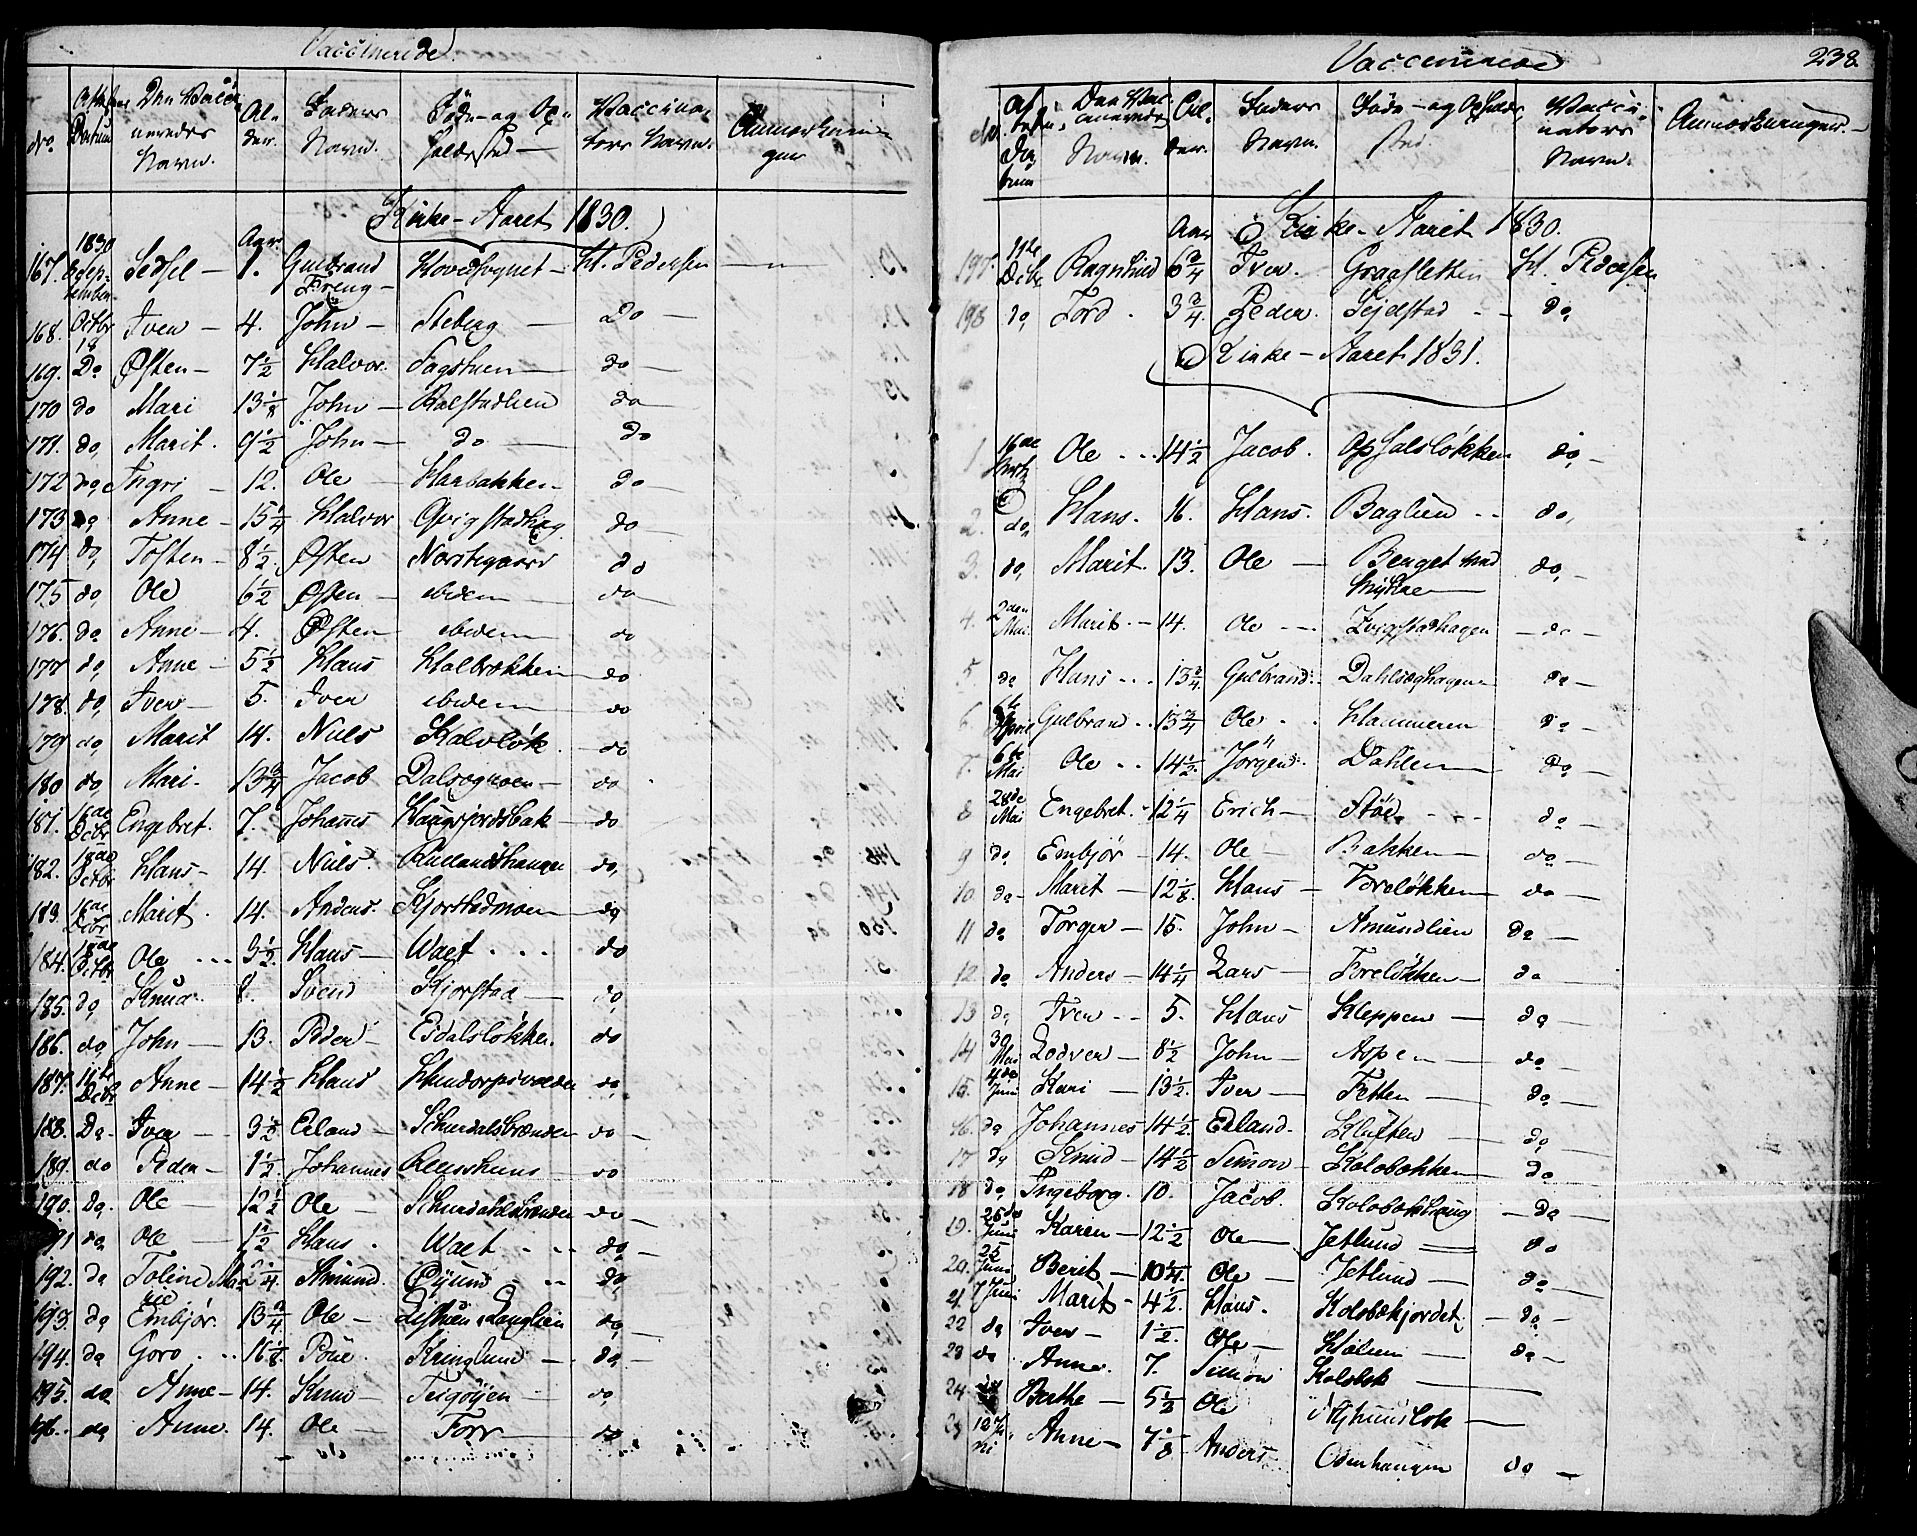 Vaccinerede
No. Attestens Datum Den Vacci-neredes Navn. Al-der. Faders Navn. Føde- og Op-holdssted Vaccina-teurs Navn. Anmærknin-ger
Kirke-Aaret 1830.
Aar.
167. 1830 Septemb. Sedsel - 1. Guldbrand Hovedsognet - H. Pedersen
168. Octbr 18 Iver - 4. John - Steberg - Do
169. Do Østen - 7 1/2 Halvor. Fagstuen do
170 do Mari 13 1/8 John - Kalstadlien do
171. do, Marit. 9 1/2 John - do do
172 do, Ingri - 12. Ole Harbakken do
173 do Anne - 15 1/4 Halvor Qvigstadhag do
174 do, Tosten - 8 1/2. Østen Nordregaard do
175 do, Ole 6 1/2 Østen - ibidem do
176. do Anne - 4. Østen ibidem do
177 do, Anne - 5 1/2 Hans Kalbækken do
178. do, Iver - 5. Iver ibidem do
179 do, Marit 14. Niels Kalvløk do
180 do, Mari. 13 3/4 Jacob Dalsegmoen - do
181. 16de Octbr Engebret. 7. Johannes Haugsjordsbak do
182. 18de Octbr Hans - 14. Niels. Rudlandshaugen do,
183. 16de Octbr Marit. 14. Anders. Kjorstadmoen do
184. 18de Octbr Ole 3 1/2. Hans - Waet do
185. do, Knud. 8. Svend Kjorstad - do
186. do, John - 13. Peder - Eidalsløkken. do
187. 11te Decbr Anne - 14 1/2 Hans Hundorpsvælde do,
188. Do. Iver - 3 1/2 Erland - Schurdalsbrænden do
189. do Peder - 1 1/2. Johannes do
190. do. Ole - 12 1/2 Ole - do
191 do Ole - 1 1/2 Hans. Waet do,
192. do Toline Marie 2 1/4. Amund. Øyum do,
193. do Embjør. 13 3/4 Ole - Listuen, Langlien do
194. do Goro 16 1/8. Poul. Kringlund - do,
195. do Anne - 14. Knud - Teigøyen - do
196. do Anne. 14. Ole Forr do
Vaccinerede 238.
No. Attestens Datum Den Vac-cineredes Navn. Al-der. Faders Navn. Føde- og Opholds-sted. Vacci-nateurs Navn. Anmærkninger.
Aar Kirke-Aaret 1830.
197. 11te Decbr Ragnhild 6 3/4 Iver. Graasletten H. Pedersen
198 do, Tord. 3 3/4. Peder. Sejelstad do,
Kirke-Aaret 1831.
1 16de Ole 14 1/2 Jacob. Opsalsløkken do,
2. do, Hans. 16. Hans. Baglien do,
3. do, Marit. 13. Ole - Berget ved
do,
4. 2den Mai Marit - 14. Ole Qvigstadhagen do
5 do Hans 13 3/4. Gulbrand. Dahlseghagen do
6 April Gulbran 13 3/4 Ole Hammeren do
7. 6te Mai Ole 14 1/2. Jørgen. Dahlen do
8 28de Mai Engebret. 12 1/4 Erich - Støe do
9 do Embjør - 14. Ole Bakken do
10 do Marit - 12 1/8. Hans - Foreløkken do
11 do Torger - 15. John - Amundlien do
12. do Anders - 14 1/4 Lars - Foreløkken do
13 do Iver 5. Hans Kleppen do
14 30 Mai Lodver - 8 1/2 John - Aspen do
15. 4de Juni Kari - 13 1/2. Iver - Fetten do
16. do Johannes 14 1/2. Erland. Kluften do
17 do Knud - 14 1/2 Simon - Kolobækken do
18 do Ingeborg. 10. Jacob. Kolobækhaug do
19. 25de Juni Karen - 12 1/2 Ole Jetlund do
20. 25 Juni Berit - 10 1/4. Ole - Jetlund do
21. 7 Juni Marit - 4 1/2. Hans. Kolobækjordet do
22 do Iver - 1 1/2. Ole - Hølem do
23 do Anne. 7. Simon Kolobek
24. Berthe - 5 1/2 Ole
25 12 Juni Anne - 7 1/8 Anders Odenhaugen do